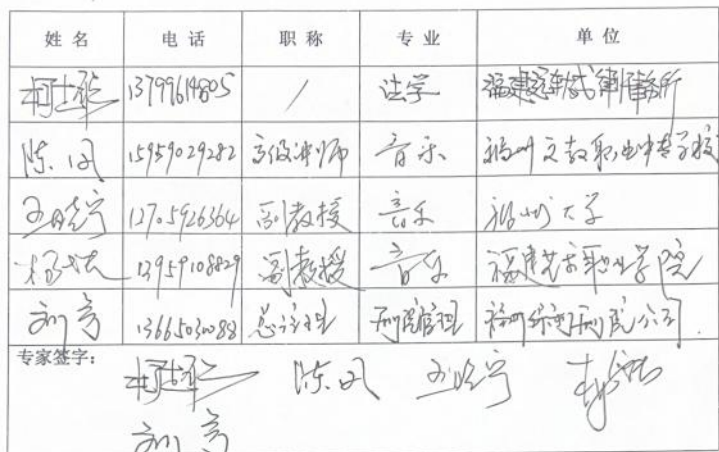 姓名 电话 职称 专业 单位
柯士华 13799614805 / 法学 福建 律师事务所
陈风 15959029282 高级讲师 音乐 福州文教职业中专学校
王晓宁 12705926364 副教授 音乐 福州大学
杨 13959108829 副教授 音乐 福建艺术职业学院
刘亮 13665030088 总经理 剧院管理 福州 剧院公司
专家签字：
柯士华 陈风 王晓宁
刘亮